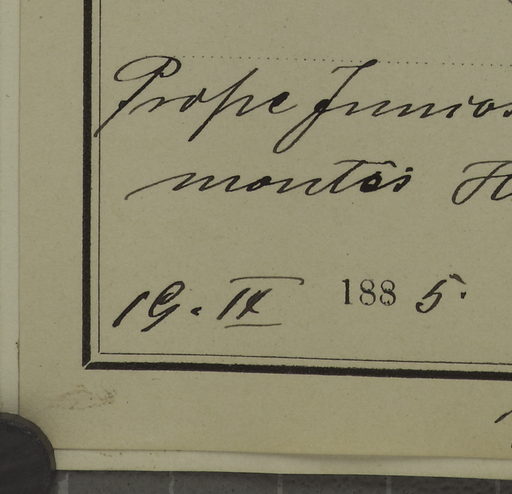 Prope Junios
montes
19. IX 1885.